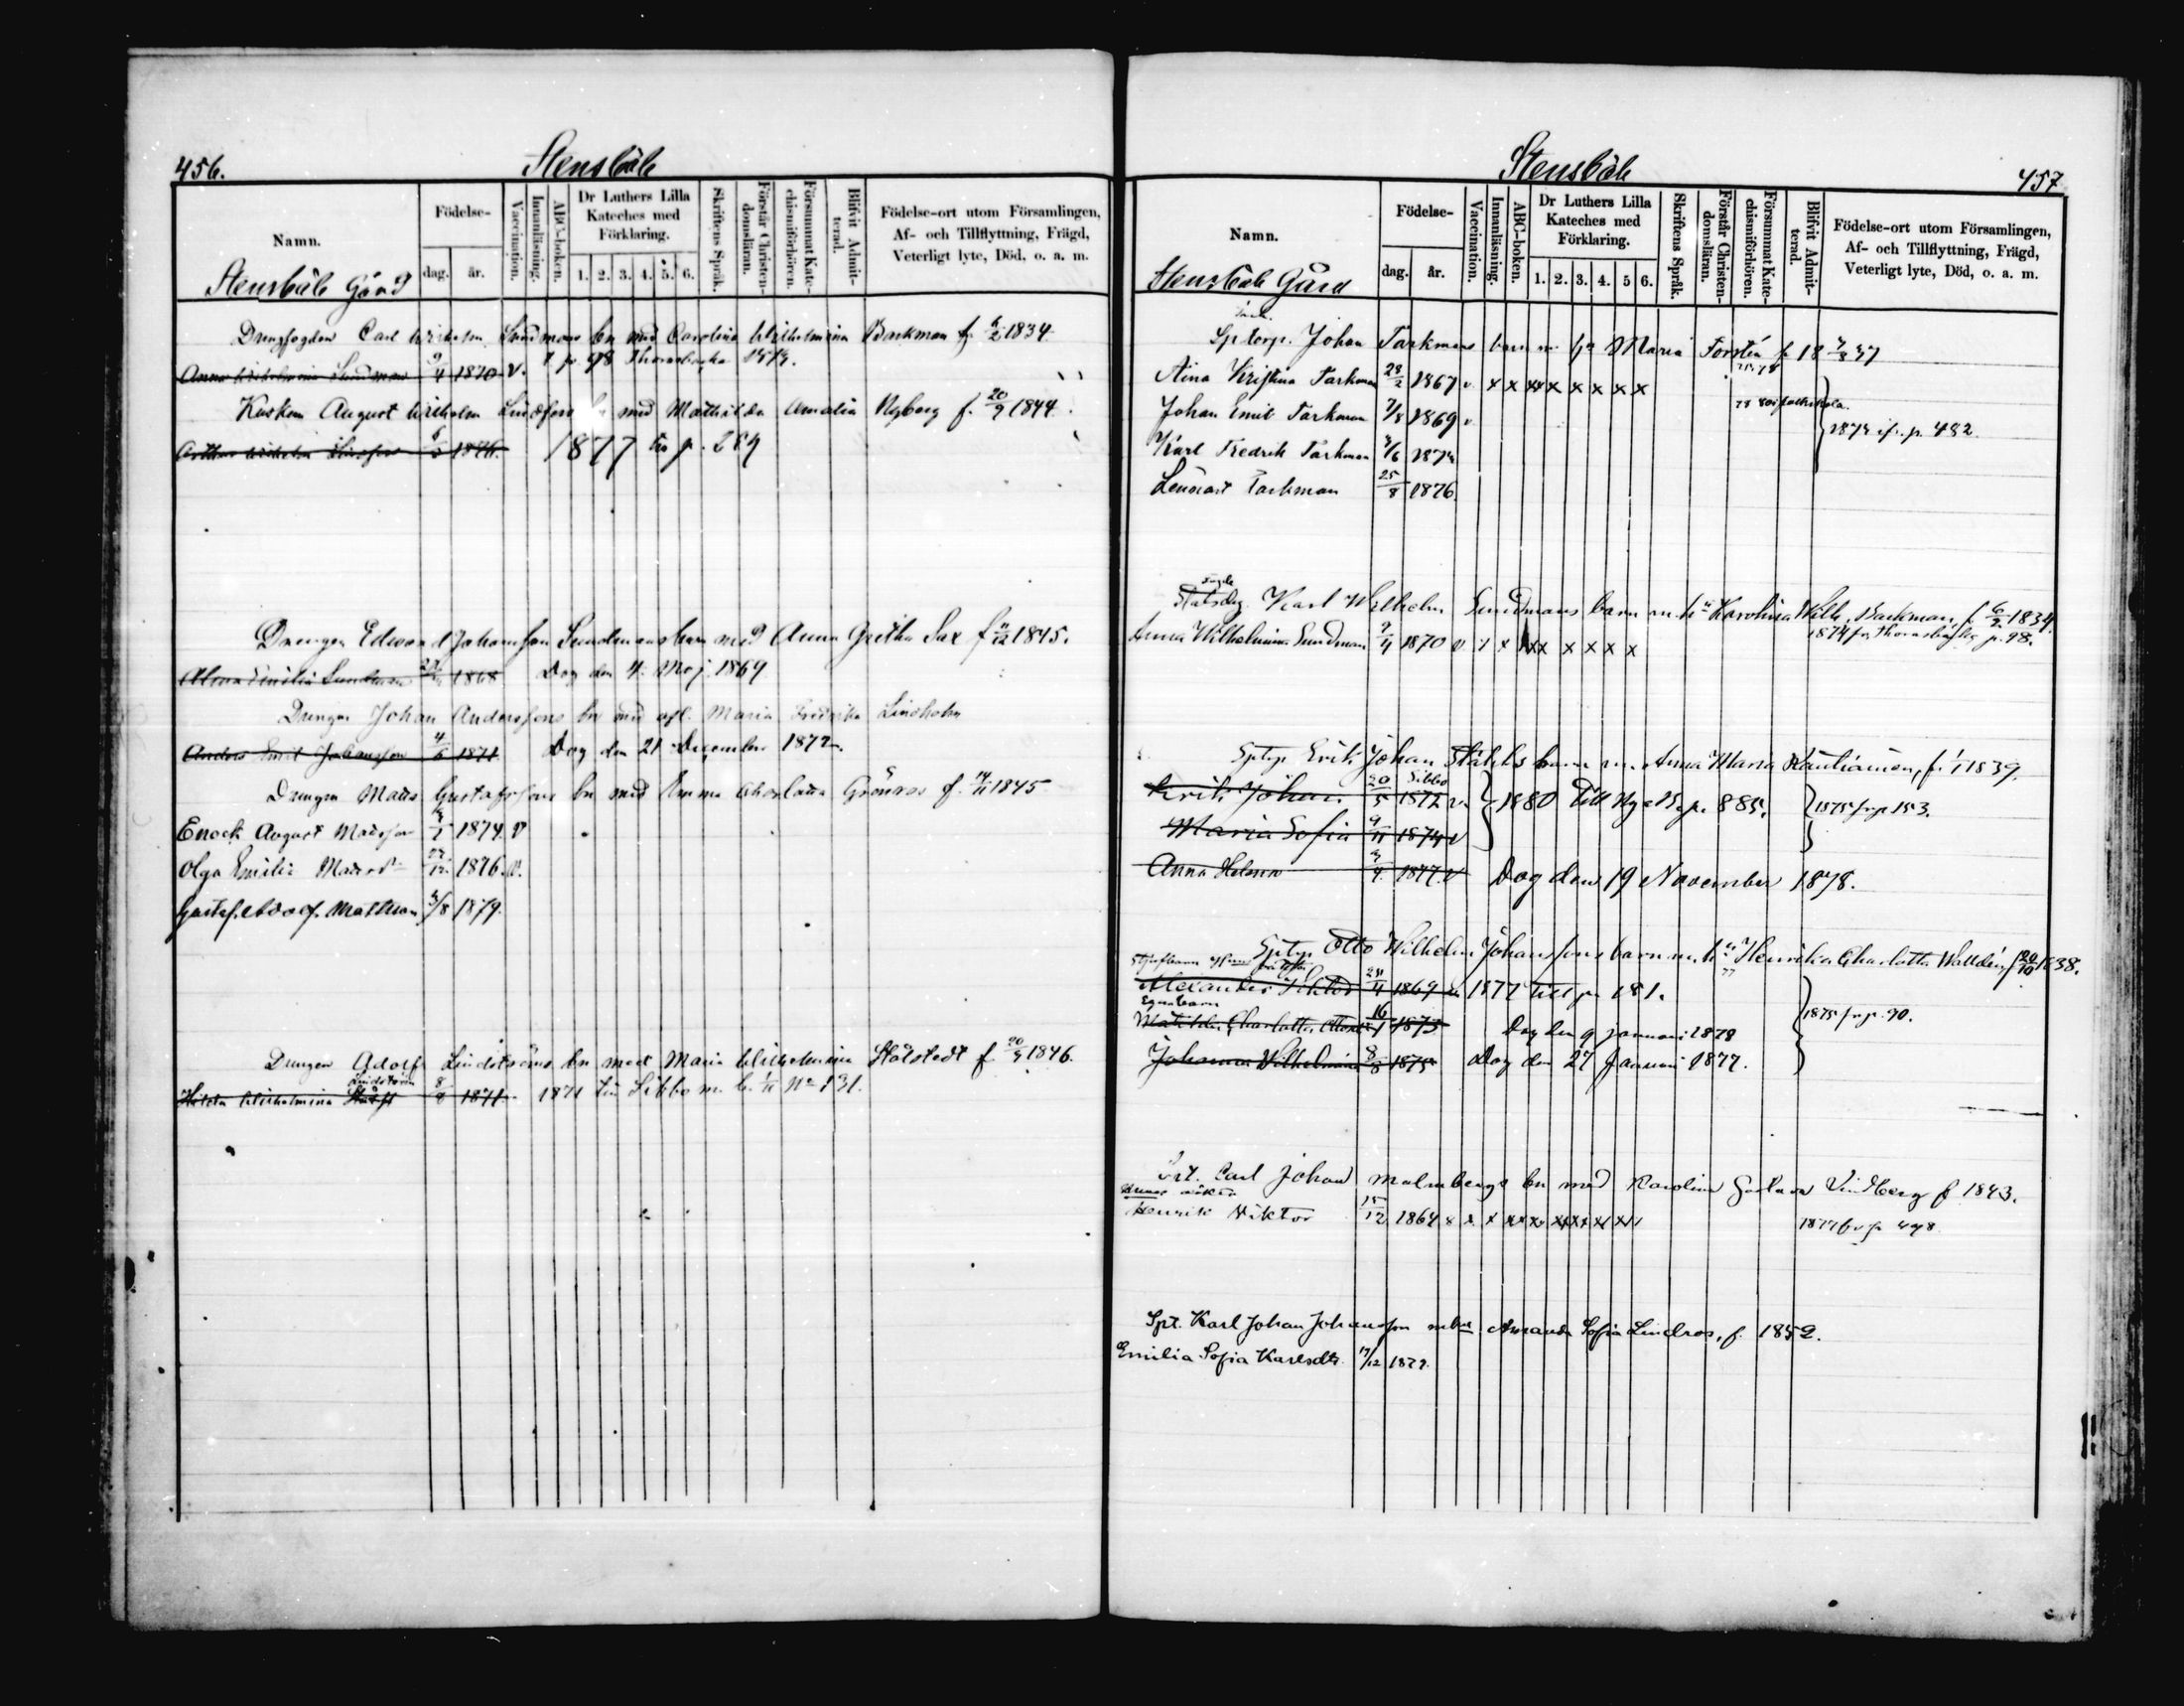 456.
Stensböle
Namn.
Födelse-
dag.
år.
Vaccination.
Innanläsning.
ABC-boken.
Dr Luthers Lilla
Kateches med
Förklaring.
1. 2. 3. 4. 5. 6.
Skriftens Språk.
Förstår Christen-
domsläran.
Försummat Kate-
chismiförhören.
Blifvit Admit-
terad.
Födelse-ort utom Församlingen,
Af- och Tillflyttning, Frägd,
Veterligt lyte, Död, o. a. m.
Stensböle Gård
Drengfogden Carl Wilhelm Sundmans bn med Carolina Wilhelmina Backman f. 6/2 1834
Anna Wilhelmina Sundman 9/4 1870 v. T p. 98 Thornsbacka 1874.
Kusken August Wilhelm Lindfors bn med Mathilda Amalia Nyberg f. 20/9 1844.
Arthur Wilhelm Lindfors 1876. 1877 till p. 289
Drengen Edvard Johansson Sundmans barn med Anna Gretha Sax f 11/12 1845.
Alma Emilia Sundman 1868 Dog den 4 Maj 1869
Drengen Johan Anderssons bn med afl. Maria Fredrika Lindholm
Anders Emil Johansson 4/6 1871 Dog den 21 December 1872.
Drengen Matts Gustafssons bn med Emma Charlotta Grönros f. 14/11 1845
Enock August Matsson 1874. v
Olga Emilia Matsd 27/12 1876. v.
Gustaf Adolf Mattsson 3/8 1879.
Drengen Adolf Lindströms bn med Maria Wilhelmina Hälstedt f. 20/9 1846.
Lindström
Hilda Wilhelmina 8/8 1871. 1871 till Sibbo m. b. 1/11 No 131.
Stensböle
457
Namn.
Födelse-
dag.
år.
Vaccination.
Innanläsning.
ABC-boken.
Dr Luthers Lilla
Kateches med
Förklaring.
1. 2. 3. 4. 5 6.
Skriftens Språk.
Förstår Christen-
domsläran.
Försummat Kate-
chismiförhören.
Blifvit Admit-
terad.
Födelse-ort utom Församlingen,
Af- och Tillflyttning, Frägd,
Veterligt lyte, Död, o. a. m.
Stensböle Gård
Sptorp. Johan Tarkmans barn m. h. Maria Forstén f 18 37
Aina Kristina Tarkman 28/2 1867 v x x xx x x x x x
Johan Emil Tarkman 7/8 1869 v
1874 ifr. p. 482.
Karl Fredrik Tarkman 1874
Lennart Tarkman 25/8 1876
Fogde
Statsdrg. Karl Wilhelm Sundmans barn m. h. Karolina Wilh. Backman, f. 6/2 1834.
Anna Wilhelmina Sundman 9/4 1870 v x x xx x x x x 1874 fr Thornsbacka p. 98.
Sptorp Erik Johan Ståhls barn m. Anna Maria Rautiainen, f. 1/1 1839.
Sibbo
Erik Johan 20/5 1872 v. } 1880 Till Nya B. p. 885. } 1875 fr. p. 153.
Maria Sofia 9/11 1874 v
Anna Helena 1877. v Dog den 19 November 1878.
Sptorp Otto Wilhelm Johanssons barn m. h. Henrika Charlotta Walldén, f 20/10 1838.
Alexander Viktor 24/4 1869 v 1877 till p. 181.
Egna barn
Matilda Charlotta Ottosd. 16/1 1873 Dog den 9 januari 1878 } 1875 fr. p. 90.
Johanna Wilhelmina 8/8 1875 Dog den 27 Januari 1877.
Carl Johan Malmbergs bn med Karolina Gustava Lindberg f 1843.
Henrik Viktor 15/12 1864 1877 fr p 498
Spt. Karl Johan Johansson m hu Amanda Sofia Lindros, f. 1852.
Emilia Sofia Karlsdtr. 17/12 1879.